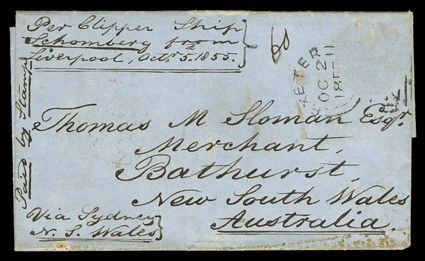 Per Clipper Ship
Schomberg from
Liverpool, Octr 5th 1855.
Paid by Stamps
ETER
OC 2
185
Thomas M Sloman Esqr.
Merchant,
Bathurst,
New South Wales
Australia
Via Sydney
N. S. Wales